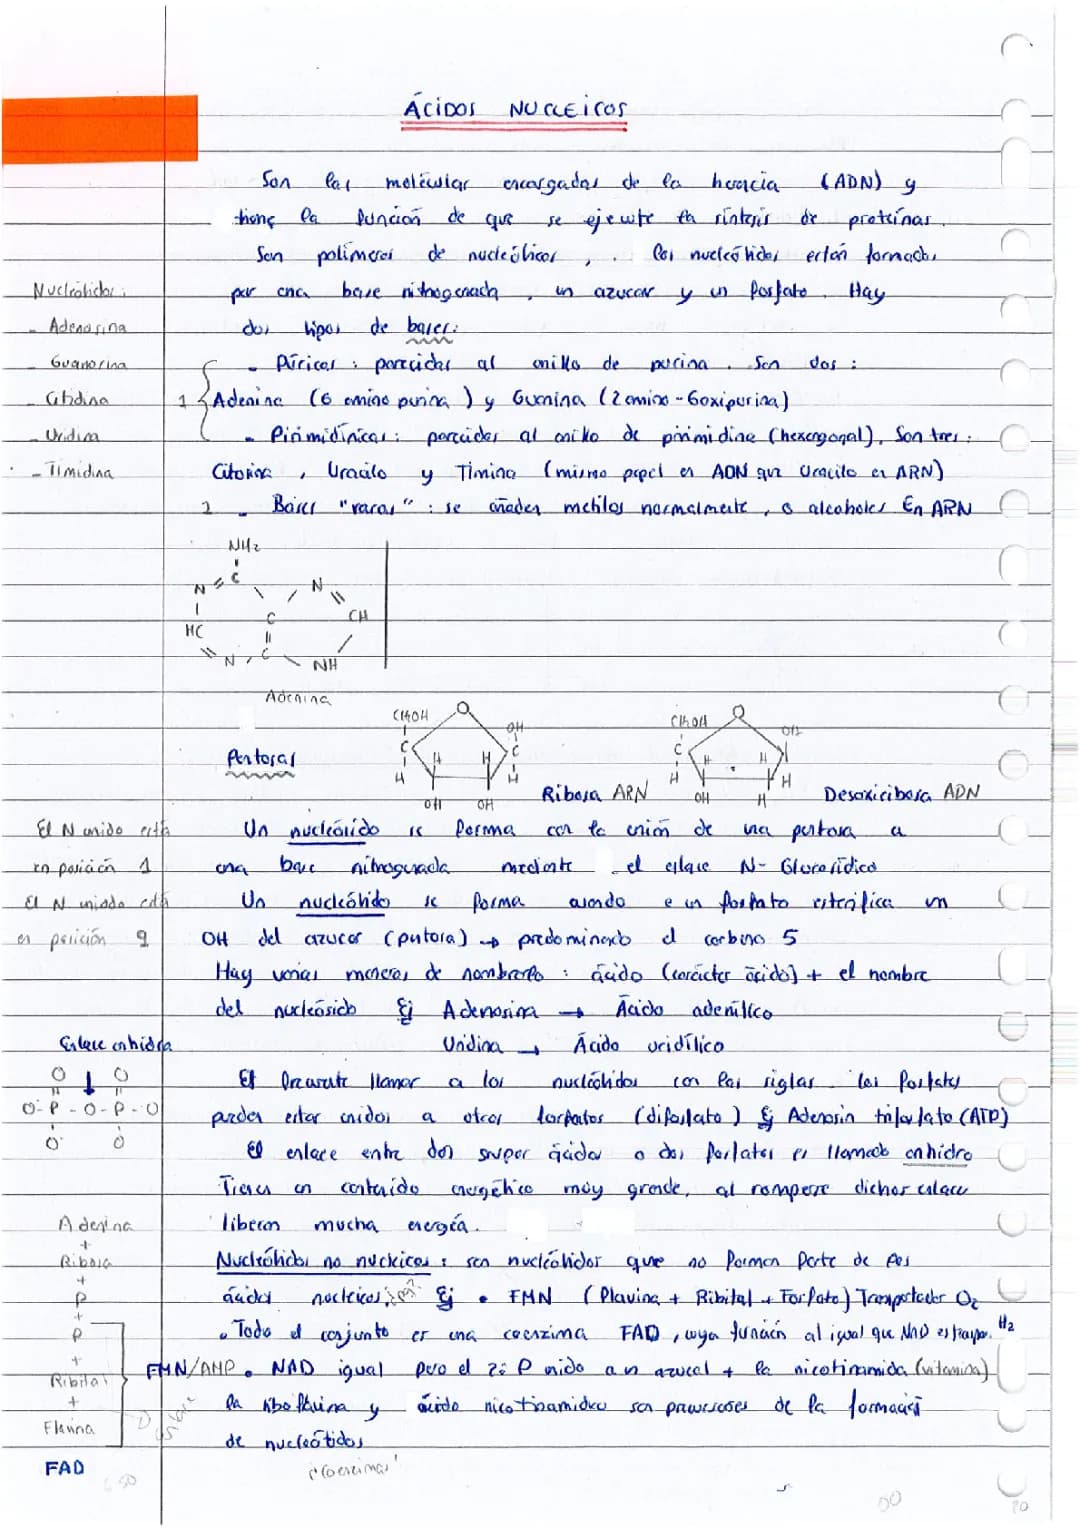 ÁCIDOS NUCLEICOS
Son las moléculas encargadas de la herencia (ADN) y
tiene la función de que se ejecute la síntesis de proteínas.
Son polímeros de nucleótidos, los nucleótidos están formados
por una base nitrogenada, un azucar y un fosfato. Hay
dos tipos de bases:
- Púricas: parecidas al anillo de purina. Son dos:
1 Adenina (6 amino purina) y Guanina (2 amino-6oxipurina)
- Pirimidínicas: parecidas al anillo de pirimidina (hexagonal), Son tres:
Citosina, Uracilo y Timina (mismo papel en ADN que Uracilo en ARN)
2 - Bases "raras": se añaden metilos normalmente, o alcoholes En ARN
Nucleótidos:
- Adenosina
- Guanosina
- Citidina
- Uridina
- Timidina
NH2
C
N
N
C
CH
HC
N
C
NH
Adenina
Pentosas
CH2OH
O
OH
C
C
H
H
H
H
OH
OH
Ribosa ARN
CH2OH
O
OH
C
H
H
H
H
OH
H
Desoxirribosa ADN
El N unido está
en posición 1
El N unido está
en posición 9
Un nucleósido se forma con la unión de una pentosa a
una base nitrogenada mediante el enlace N-Glucosídico
Un nucleótido se forma cuando un fosfato esterifica un
OH del azucar (pentosa) → predominando el carbono 5
Hay varias maneras de nombrarlo: ácido (carácter ácido) + el nombre
del nucleósido Ej Adenosina → Ácido adenílico
Uridina → Ácido uridílico
Es frecuente llamar a los nucleótidos con las siglas. Los fosfatos
pueden estar unidos a otros fosfatos (difosfato) Ej Adenosin trifosfato (ATP)
El enlace entre dos ácidos o dos fosfatos es llamado anhidro
Tienen un contenido energético muy grande, al romperse dichos enlace
liberan mucha energía.
Enlace anhidro
O O
O-P-O-P-O
O O
Nucleótidos no nucleicos: son nucleótidos que no forman parte de los
ácidos nucleicos, Ej • FMN (Flavina + Ribital + Fosfato) Transportador O2
• Todo el conjunto es una coenzima FAD, cuya función al igual que NAD es transpor. H2
FMN/AMP • NAD igual pero el 2º P unido a un azucal + la nicotinamida (vitamina)
la riboflavina y ácido nicotinamidico son precursores de la formación
de nucleótidos
"Coenzimas"
Adenina
+
Ribosa
+
P
+
P
+
Ribital
+
Flavina
FAD
Enlace